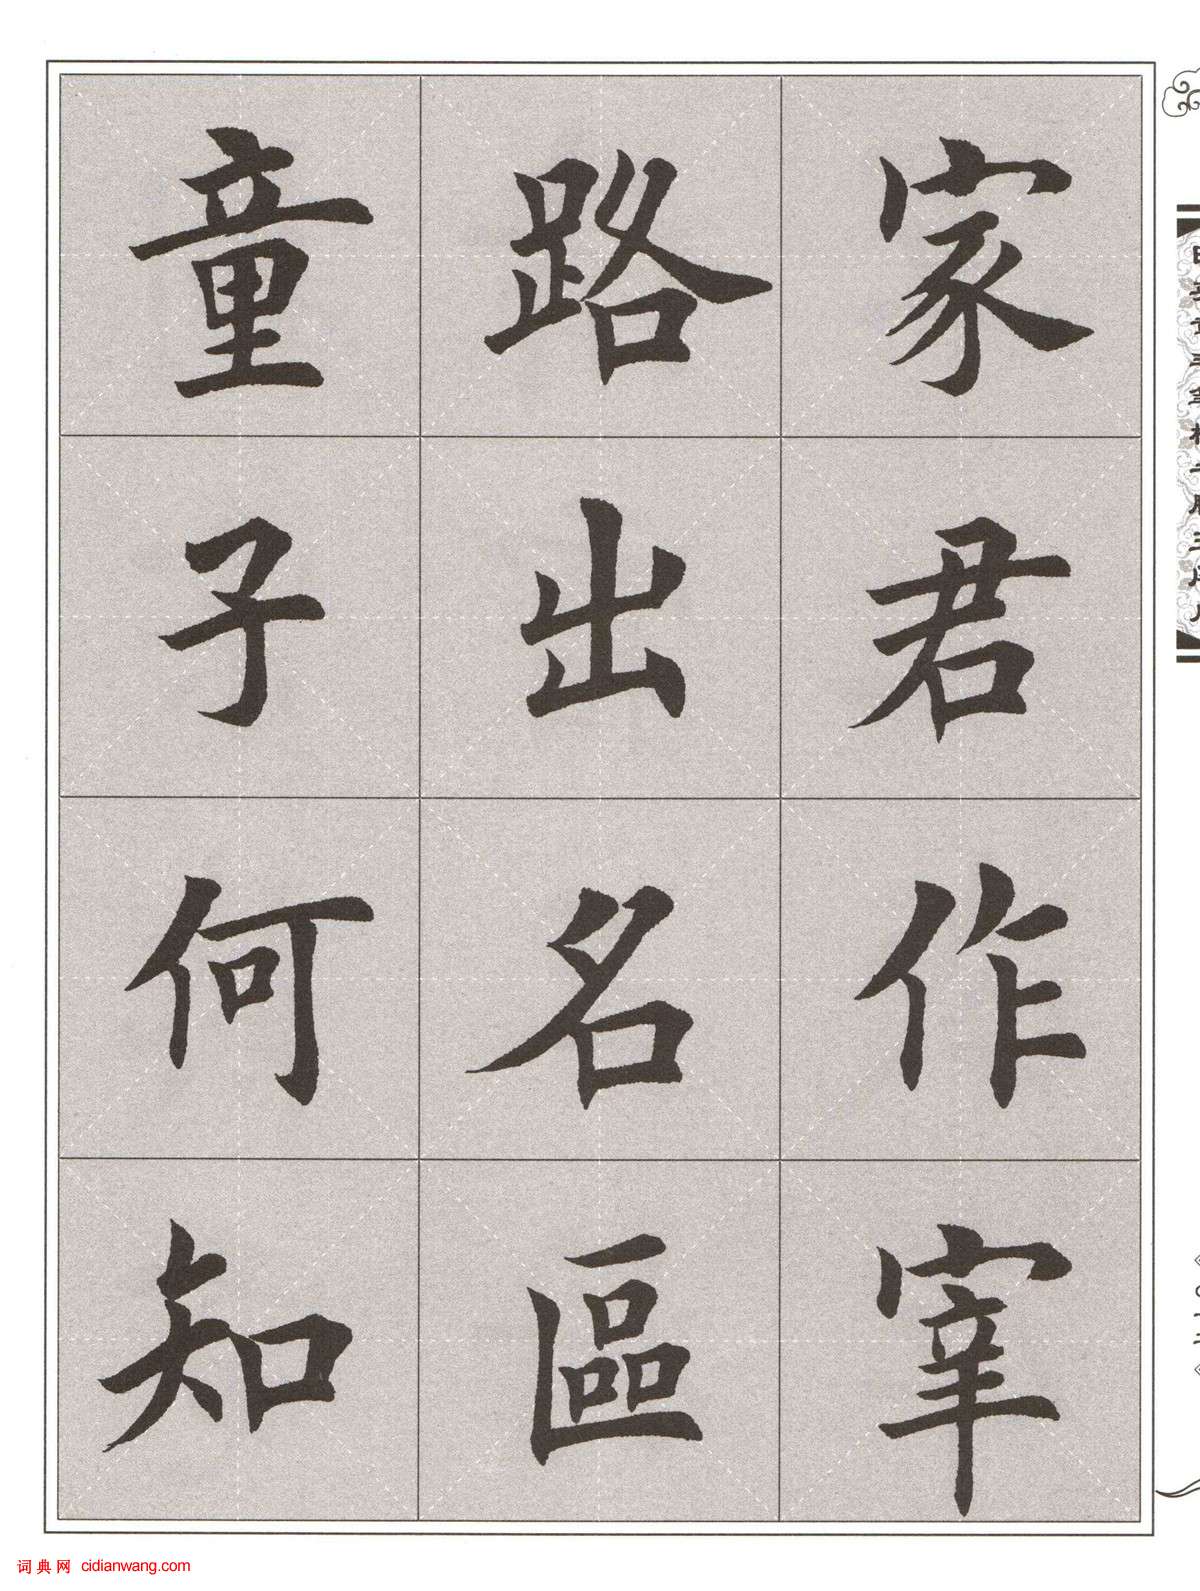 家君作宰
路出名區
童子何知
词典网 cidianwang.com